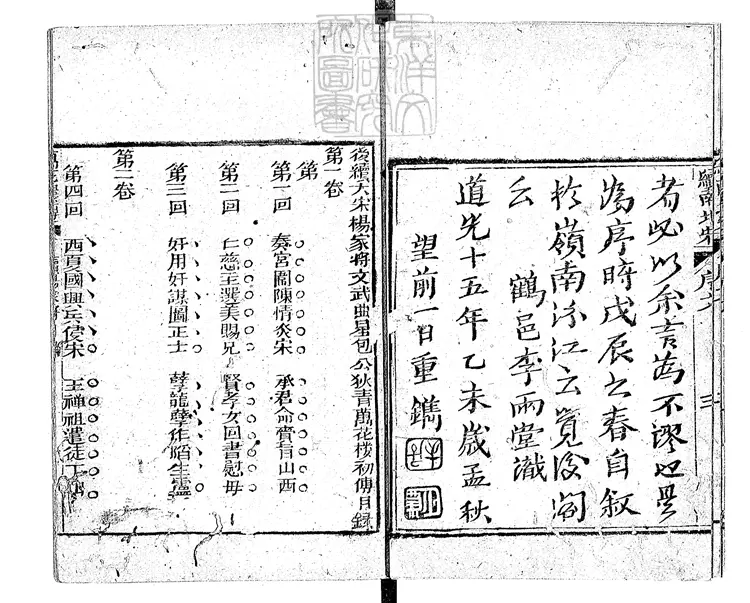 者必以余言為不謬也是
為序時戊辰之春自敘
於嶺南汾江之覺後閣
云　鶴邑李雨堂識
道光十五年乙未歲孟秋
望前一日重鐫
後續大宋楊家將文武曲星包公狄青萬花樓初傳目錄
第一卷
第
第一回　奏宮闈陳情炎宋　承君命賫旨山西
第二回　仁慈主選美賜兄　賢孝女回書慰母
第三回　奸用奸謀圖正士　孽龍孽作陷生靈
第二卷
第四回　西夏國興兵侵宋　王禪祖遣徒下